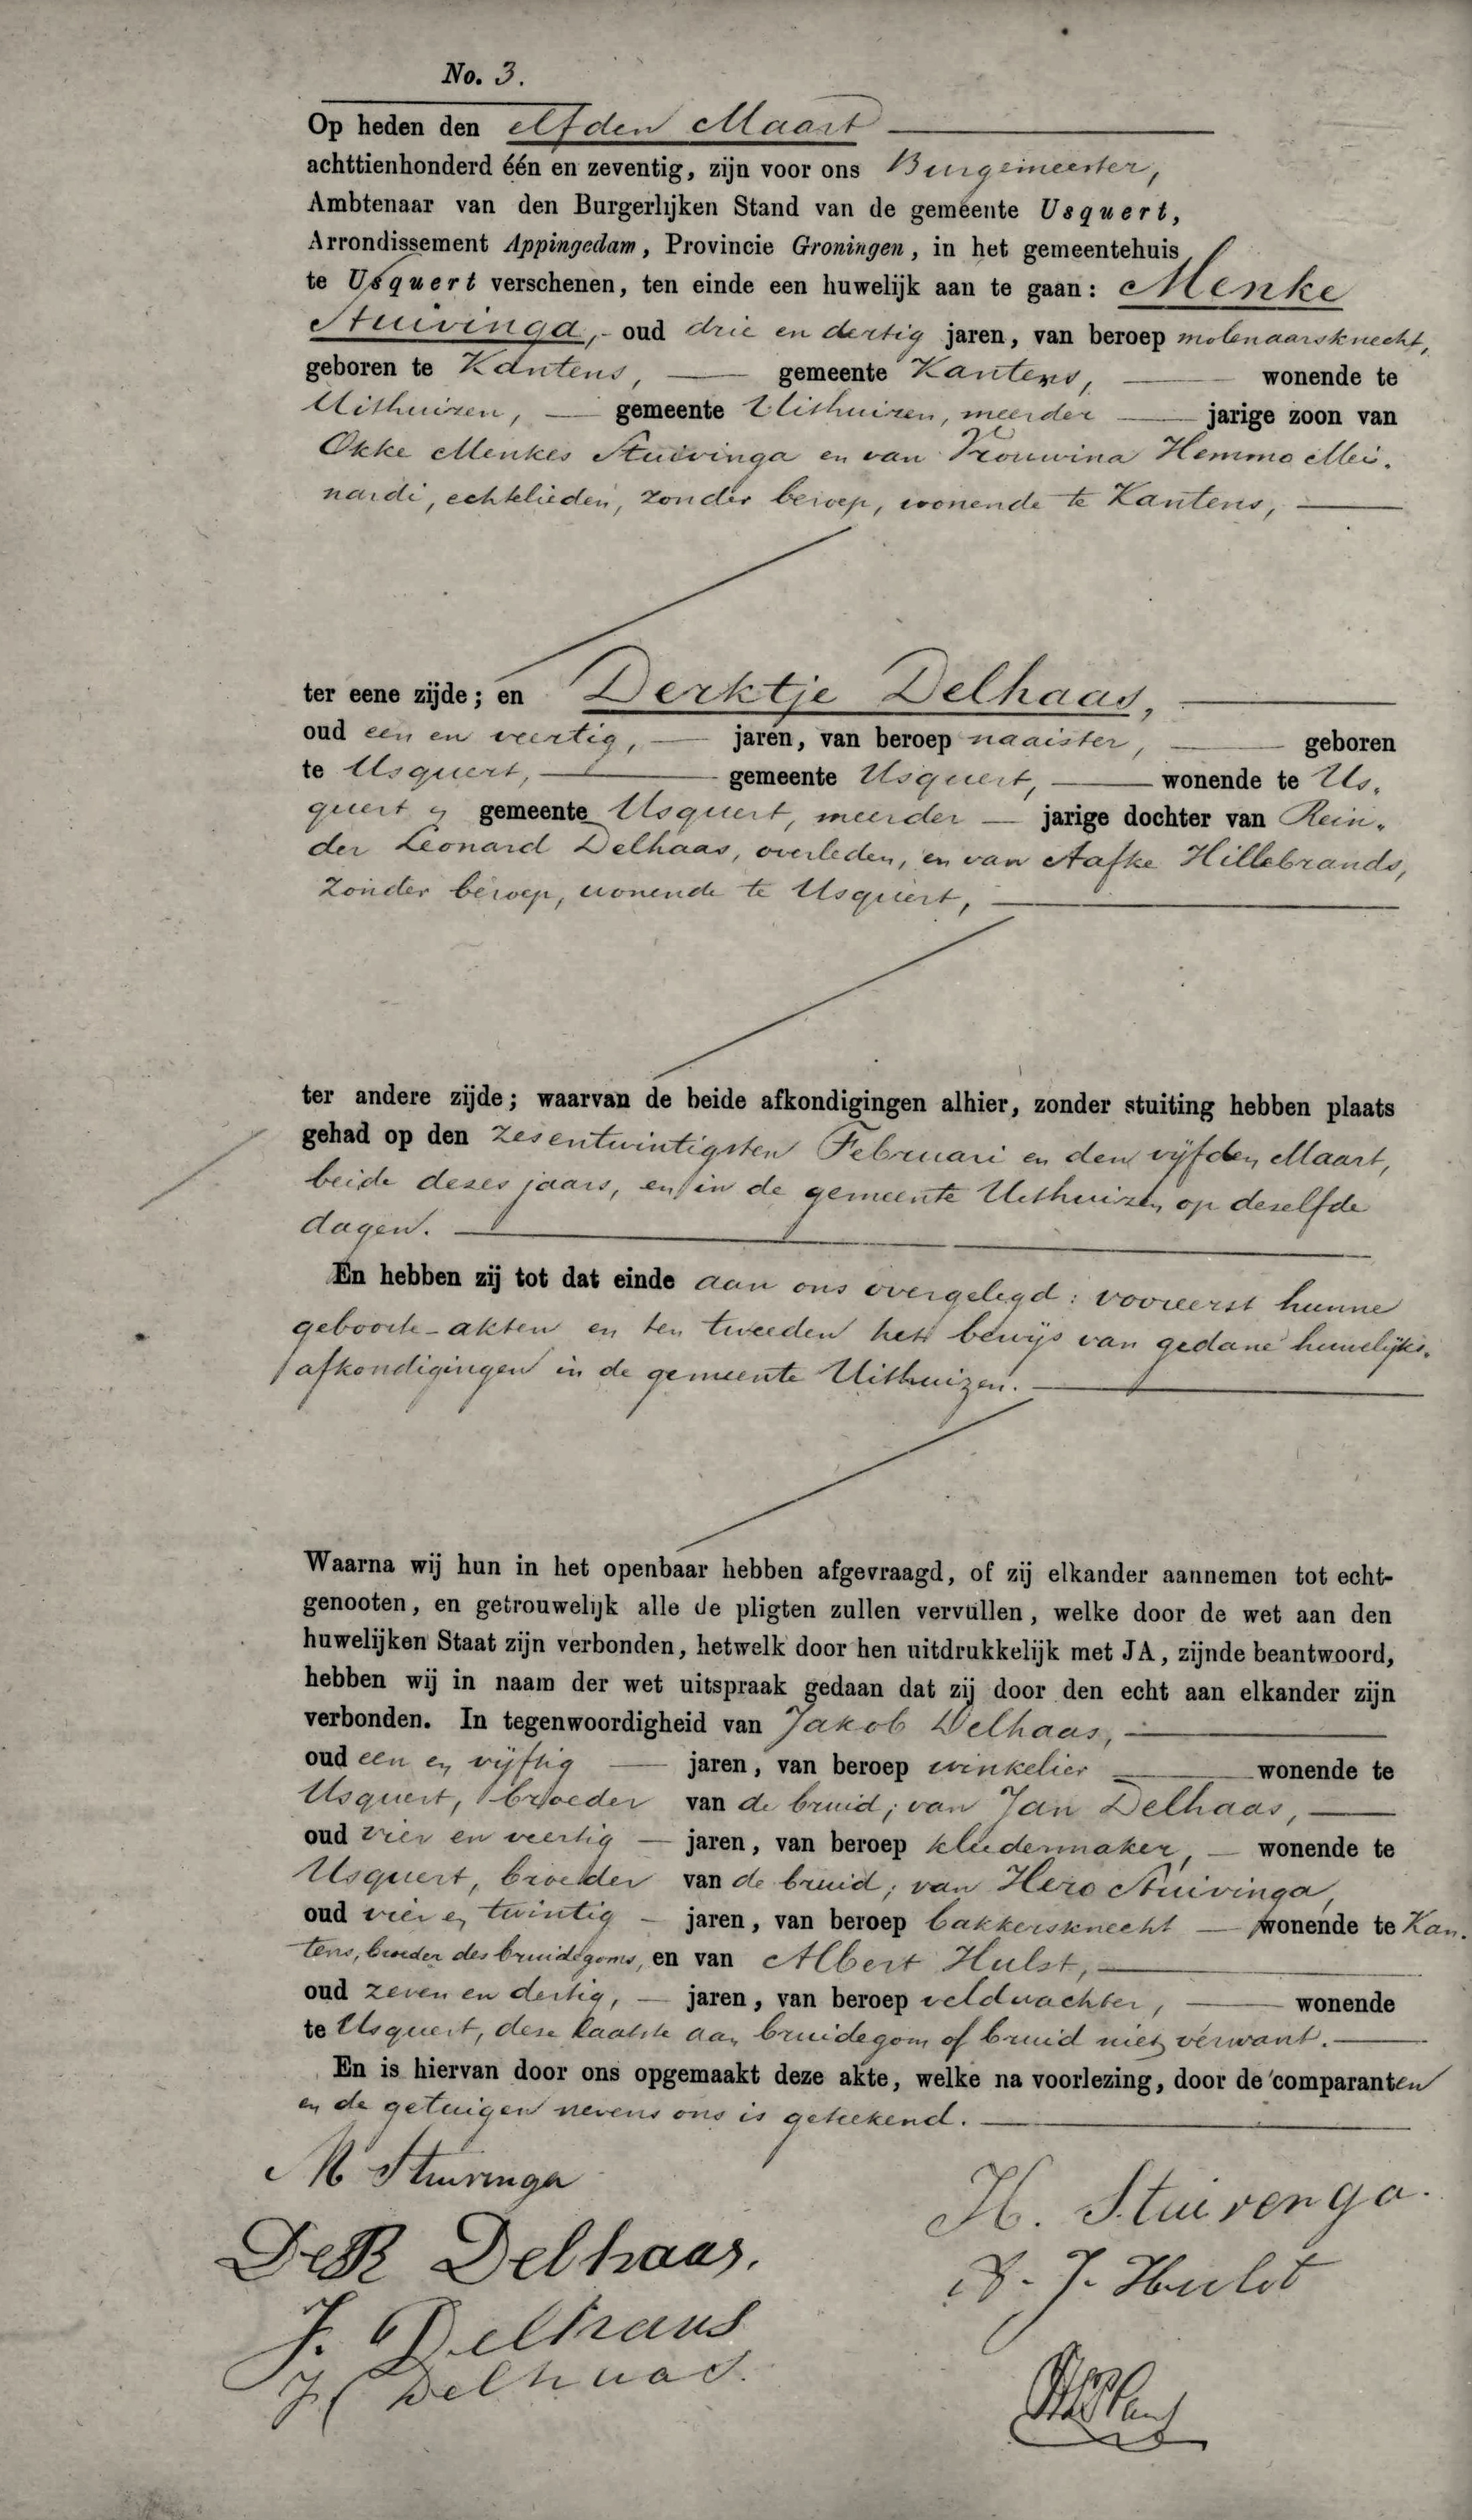 No. 3.
Op heden den elfden Maart
achttienhonderd één en zeventig, zijn voor ons Burgemeester,
Ambtenaar van den Burgerlijken Stand van de gemeente Usquert,
Arrondissement Appingedam, Provincie Groningen, in het gemeentehuis
te Usquert verschenen, ten einde een huwelijk aan te gaan: Menke
Stuivinga, oud drie en dertig jaren, van beroep molenaarsknecht,
geboren te Kantens, gemeente Kantens, wonende te
Uithuizen, gemeente Uithuizen, meerder jarige zoon van
Okke Menkes Stuivinga en van Vrouwina Hemmo Mei-
nardi, echtelieden, zonder beroep, wonende te Kantens,
ter eene zijde; en Derktje Delhaas,
oud een en veertig, jaren, van beroep naaister, geboren
te Usquert, gemeente Usquert, wonende te Us-
quert gemeente Usquert, meerder jarige dochter van Rein-
der Leonard Delhaas, overleden, en van Aafke Hillebrands,
zonder beroep, wonende te Usquert,
ter andere zijde; waarvan de beide afkondigingen alhier, zonder stuiting hebben plaats
gehad op den zesentwintigsten Februari en den vijfden Maart,
beide dezes jaars, en in de gemeente Uithuizen op deselfde
dagen.
En hebben zij tot dat einde aan ons overgelegd: vooreerst hunne
geboorte-akten en ten tweeden het bewijs van gedane huwelijks-
afkondigingen in de gemeente Uithuizen.
Waarna wij hun in het openbaar hebben afgevraagd, of zij elkander aannemen tot echt-
genooten, en getrouwelijk alle de pligten zullen vervullen, welke door de wet aan den
huwelijken Staat zijn verbonden, hetwelk door hen uitdrukkelijk met JA, zijnde beantwoord,
hebben wij in naam der wet uitspraak gedaan dat zij door den echt aan elkander zijn
verbonden. In tegenwoordigheid van Jakob Delhaas,
oud een en vijftig jaren, van beroep winkelier wonende te
Usquert, broeder van de bruid; van Jan Delhaas,
oud vier en veertig jaren, van beroep kleedermaker, wonende te
Usquert, broeder van de bruid; van Hero Stuivinga,
oud vier en twintig jaren, van beroep bakkersknecht wonende te Kan-
tens, broeder des bruidegoms, en van Albert Hulst,
oud zeven en dertig, jaren, van beroep veldwachter, wonende
te Usquert, deze laatste aan bruidegom of bruid niet verwant.
En is hiervan door ons opgemaakt deze akte, welke na voorlezing, door de comparanten
en de getuigen nevens ons is geteekend.
M Stuivinga
H. Stuivenga.
De R Delhaas.
A. J. Hulst
J. Delhaas
J Delhaas.